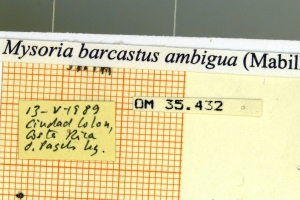 Mysoria barcastus ambigua (Mabil
OM 35.432
13-V-1989
Ciudad Colon,
Costa Rica